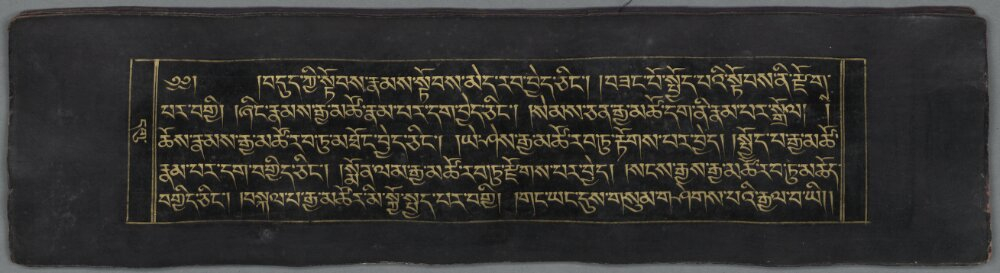 ༄༅། །བདུད་ཀྱི་སྟོབས་རྣམས་སྟོབས་མེད་རབ་བྱེད་ཅིང༌། །བཟང་པོ་སྤྱོད་པའི་སྟོབས་ནི་རྫོགས་
པར་བགྱི། །ཞིང་རྣམས་རྒྱ་མཚོ་རྣམ་པར་དག་བྱེད་ཅིང༌། །སེམས་ཅན་རྒྱ་མཚོ་དག་ནི་རྣམ་པར་སྒྲོལ། །
ཆོས་རྣམས་རྒྱ་མཚོ་རབ་ཏུ་མཐོང་བྱེད་ཅིང༌། །ཡེ་ཤེས་རྒྱ་མཚོ་རབ་ཏུ་རྟོགས་པར་བྱེད། །སྤྱོད་པ་རྒྱ་མཚོ་
རྣམ་པར་དག་བགྱིད་ཅིང༌། །སྨོན་ལམ་རྒྱ་མཚོ་རབ་ཏུ་རྫོགས་པར་བྱེད། །སངས་རྒྱས་རྒྱ་མཚོ་རབ་ཏུ་མཆོད་
བགྱིད་ཅིང༌། །བསྐལ་པ་རྒྱ་མཚོར་མི་སྐྱོ་སྤྱད་པར་བགྱི། །གང་ཡང་དུས་གསུམ་གཤེགས་པའི་རྒྱལ་བ་ཡི། །